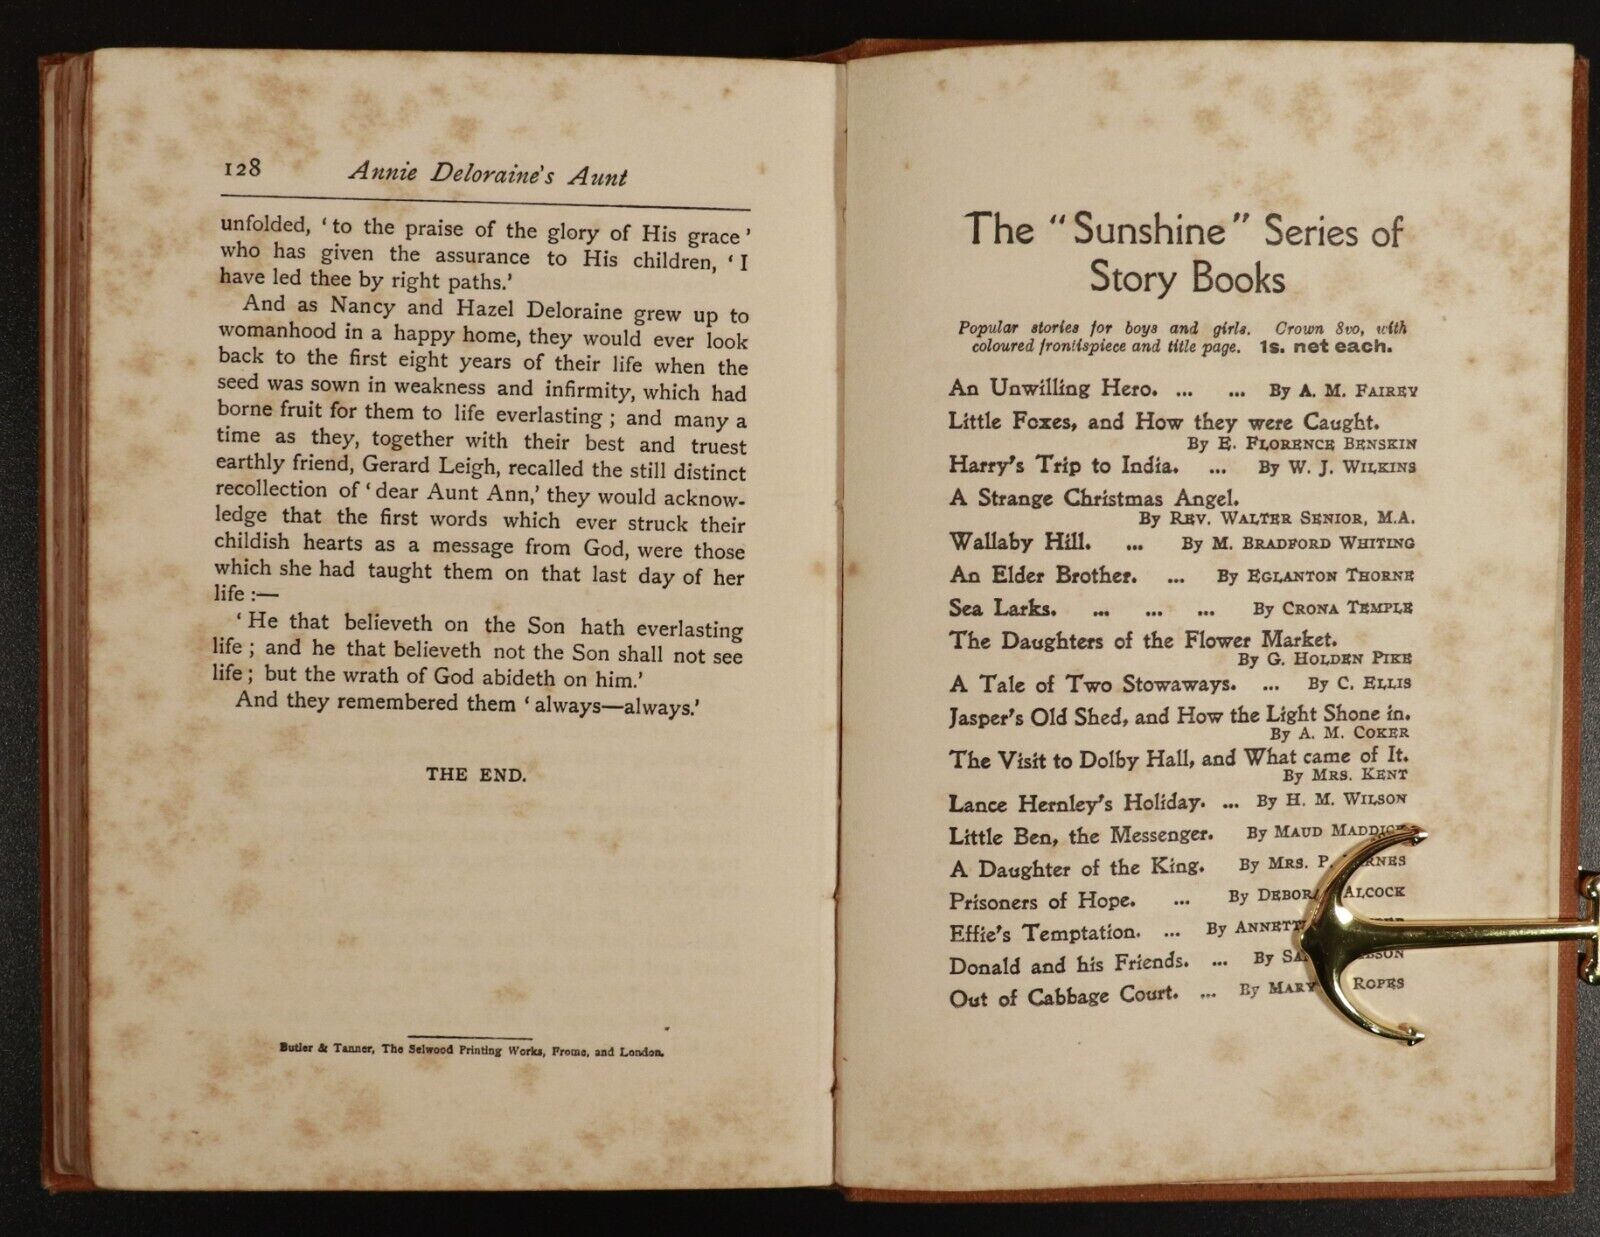 128 Annie Deloraine's Aunt
unfolded, ‘to the praise of the glory of His grace’
who has given the assurance to His children, ‘I
have led thee by right paths.’
And as Nancy and Hazel Deloraine grew up to
womanhood in a happy home, they would ever look
back to the first eight years of their life when the
seed was sown in weakness and infirmity, which had
borne fruit for them to life everlasting; and many a
time as they, together with their best and truest
earthly friend, Gerard Leigh, recalled the still distinct
recollection of ‘dear Aunt Ann,’ they would acknow-
ledge that the first words which ever struck their
childish hearts as a message from God, were those
which she had taught them on that last day of her
life:—
‘He that believeth on the Son hath everlasting
life; and he that believeth not the Son shall not see
life; but the wrath of God abideth on him.’
And they remembered them ‘always—always.’
THE END.
Butler & Tanner, The Selwood Printing Works, Frome, and London.
The “Sunshine” Series of
Story Books
Popular stories for boys and girls. Crown 8vo, with
coloured frontispiece and title page. 1s. net each.
An Unwilling Hero. ... ... By A. M. FAIREY
Little Foxes, and How they were Caught.
By E. FLORENCE BENSKIN
Harry's Trip to India. ... By W. J. WILKINS
A Strange Christmas Angel.
By REV. WALTER SENIOR, M.A.
Wallaby Hill. ... By M. BRADFORD WHITING
An Elder Brother. ... By EGLANTON THORNE
Sea Larks. ... ... ... By CRONA TEMPLE
The Daughters of the Flower Market.
By G. HOLDEN PIKE
A Tale of Two Stowaways. ... By C. ELLIS
Jasper's Old Shed, and How the Light Shone in.
By A. M. COKER
The Visit to Dolby Hall, and What came of It.
By MRS. KENT
Lance Hernley's Holiday. ... By H. M. WILSON
Little Ben, the Messenger. By MAUD
A Daughter of the King. By MRS. P.
Prisoners of Hope. ... By DEBORAH ALCOCK
Effie's Temptation. ... By
Donald and his Friends. ... By
Out of Cabbage Court. ... By MARY ROPES